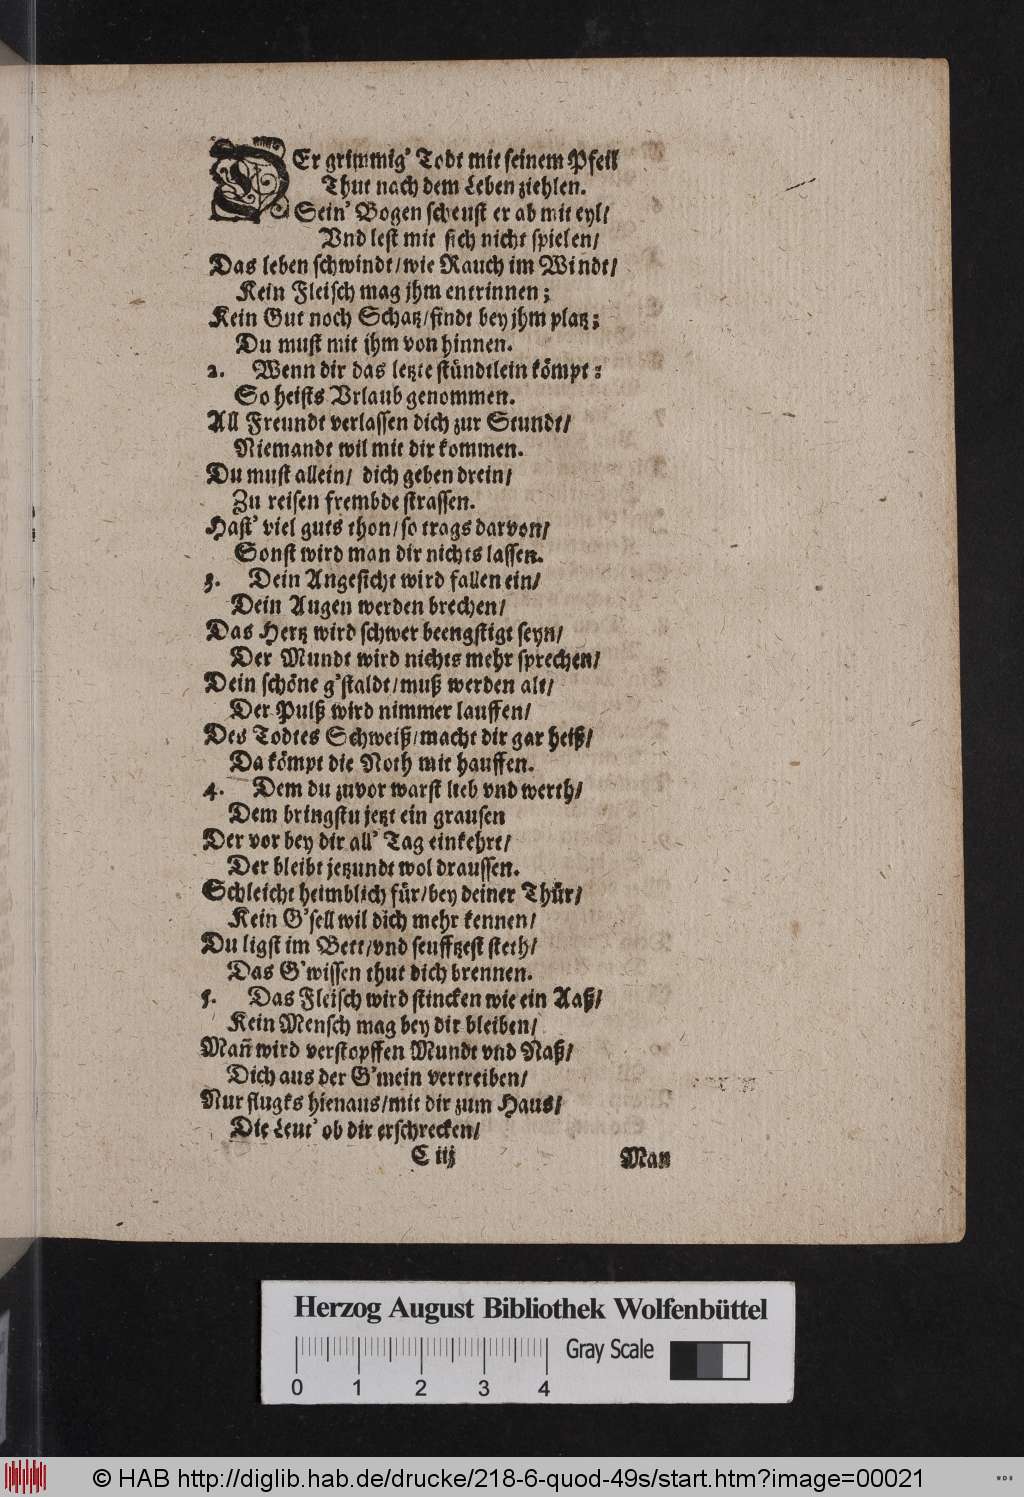 DEr grimmig' Todt mit seinem Pfeil
Thut nach dem Leben ziehlen.
Sein' Bogen scheust er ab mit eyl/
Vnd lest mit sich nicht spielen/
Das leben schwindt/wie Rauch im Windt/
Kein Fleisch mag jhm entrinnen;
Kein Gut noch Schatz/findt bey jhm platz;
Du must mit jhm von hinnen.
2. Wenn dir das letzte stündtlein kömpt:
So heists Vrlaub genommen.
All Freundt verlassen dich zur Stundt/
Niemandt wil mit dir kommen.
Du must allein/ dich geben drein/
Zu reisen frembde strassen.
Hast' viel guts thon/so trags darvon/
Sonst wird man dir nichts lassen.
3. Dein Angesicht wird fallen ein/
Dein Augen werden brechen/
Das Hertz wird schwer beengstigt seyn/
Der Mundt wird nichts mehr sprechen/
Dein schöne g'staldt/muß werden alt/
Der Pulß wird nimmer lauffen/
Des Todtes Schweiß/macht dir gar heiß/
Da kömpt die Noth mit hauffen.
4. Dem du zuvor warst lieb vnd werth/
Dem bringstu jetzt ein grausen
Der vor bey dir all' Tag einkehrt/
Der bleibt jetzundt wol draussen.
Schleicht heimblich für/bey deiner Thür/
Kein G'sell wil dich mehr kennen/
Du ligst im Bett/vnd seufftzest steth/
Das G'wissen thut dich brennen.
5. Das Fleisch wird stincken wie ein Aaß/
Kein Mensch mag bey dir bleiben/
Mañ wird verstopffen Mundt vnd Naß/
Dich aus der G'mein vertreiben/
Nur flugks hienaus/mit dir zum Haus/
Die Leut' ob dir erschrecken/
C iij Man
Herzog August Bibliothek Wolfenbüttel
Gray Scale
0 1 2 3 4
© HAB http://diglib.hab.de/drucke/218-6-quod-49s/start.htm?image=00021